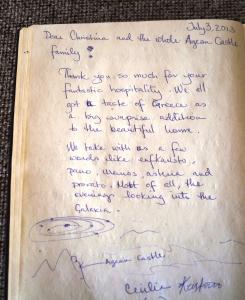 July 3, 2013
Dear Christina and the whole Aegean Castle
family!
Thank you so much for your
fantastic hospitality. We all
got a taste of Greece as
a big surprise addition
to the beautiful home.
We take with us a few
words like efkaristo,
pano, and
Most of all, the
evenings looking into the
Galaxia.
Aegean Castle
Cecilia